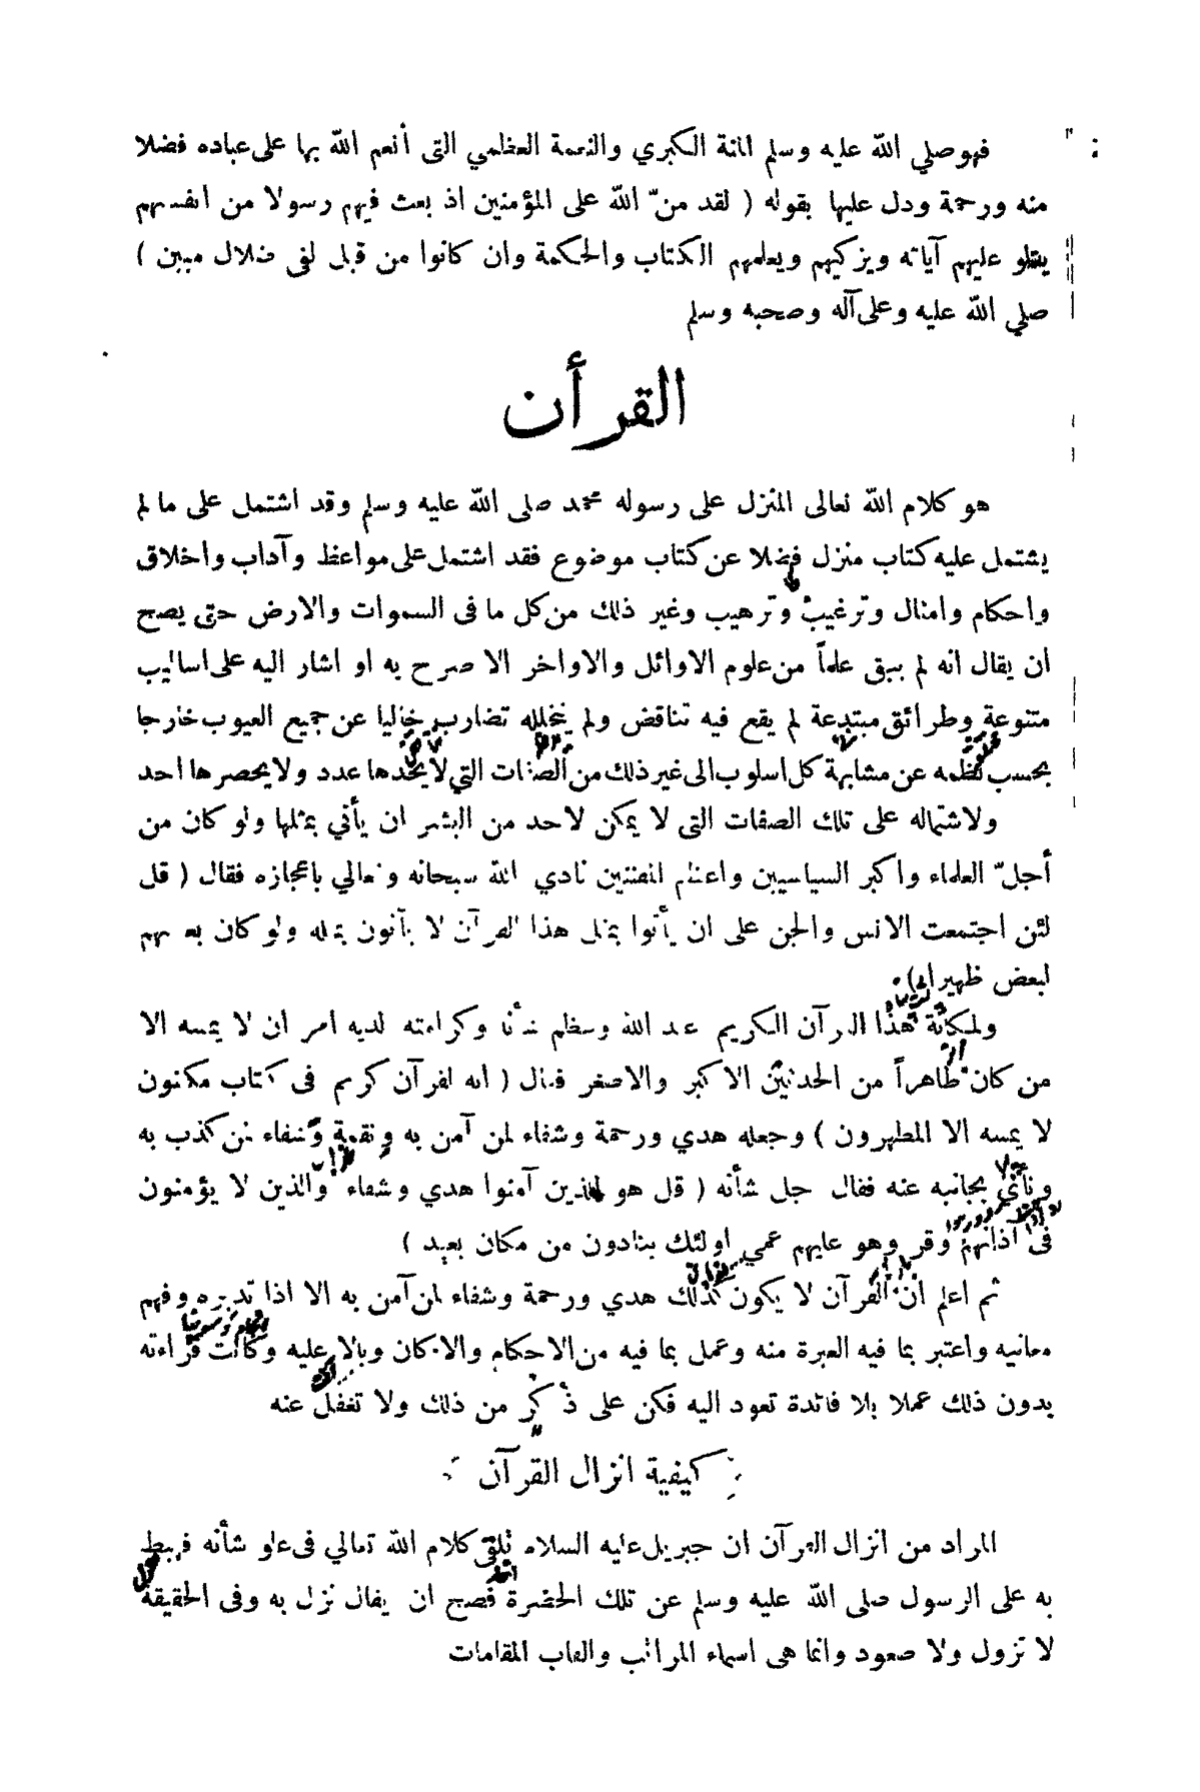 فهو صلي الله عليه وسلم المنة الكبري والنعمة العظمي التى أنعم الله بها على عباده فضلا
منه ورحمة ودل عليها بقوله ( لقد منّ الله على المؤمنين اذ بعث فيهم رسولا من انفسهم
يتلو عليهم آياته ويزكيهم ويعلمهم الكتاب والحكمة وان كانوا من قبل لفى ضلال مبين )
صلي الله عليه وعلى آله وصحبه وسلم
القرأن
هو كلام الله تعالى المنزل على رسوله محمد صلى الله عليه وسلم وقد اشتمل على ما لم
يشتمل عليه كتاب منزل فضلا عن كتاب موضوع فقد اشتمل على مواعظ وآداب واخلاق
واحكام وامثال وترغيب وترهيب وغير ذلك من كل ما فى السموات والارض حتى يصح
ان يقال انه لم يبق علماً من علوم الاوائل والاواخر الا صرح به او اشار اليه على اساليب
متنوعة وطرائق مبتدعة لم يقع فيه تناقض ولم يتخلله تضارب خاليا عن جميع العيوب خارجا
بحسب نظمه عن مشابهة كل اسلوب الى غير ذلك من الصفات التي لا يحدها عدد ولا يحصرها احد
ولاشتماله على تلك الصفات التى لا يمكن لاحد من البشر ان يأتي بمثلها ولو كان من
أجلّ العلماء واكبر السياسيين واعظم المفتين نادي الله سبحانه وتعالي باعجازه فقال ( قل
لئن اجتمعت الانس والجن على ان يأتوا بمثل هذا القرآن لا يأتون بمثله ولو كان بعضهم
لبعض ظهيرا )
ولمكانة هذا القرآن الكريم عند الله وعظم شأنه وكرامته لديه امر ان لا يمسه الا
من كان طاهراً من الحدثين الاكبر والاصغر فقال ( انه لقرآن كريم فى كتاب مكنون
لا يمسه الا المطهرون ) وجعله هدي ورحمة وشفاء لمن آمن به ونقمة وشفاء لمن كذب به
ونأى بجانبه عنه فقال جل شأنه ( قل هو للذين آمنوا هدي وشفاء والذين لا يؤمنون
فى آذانهم وقر وهو عليهم عمي اولئك ينادون من مكان بعيد )
ثم اعلم ان القرآن لا يكون كذلك هدي ورحمة وشفاء لمن آمن به الا اذا تدبره وفهم
معانيه واعتبر بما فيه العبرة منه وعمل بما فيه من الاحكام والا كان وبالا عليه وكانت قراءته
بدون ذلك عملا بلا فائدة تعود اليه فكن على ذكر من ذلك ولا تغفل عنه
كيفية انزال القرآن
المراد من انزال القرآن ان جبريل عليه السلام تلقى كلام الله تعالي فى علو شأنه فهبط
به على الرسول صلى الله عليه وسلم عن تلك الحضرة فصح ان يقال نزل به وفى الحقيقة
لا نزول ولا صعود وانما هى اسماء المراتب والقاب المقامات